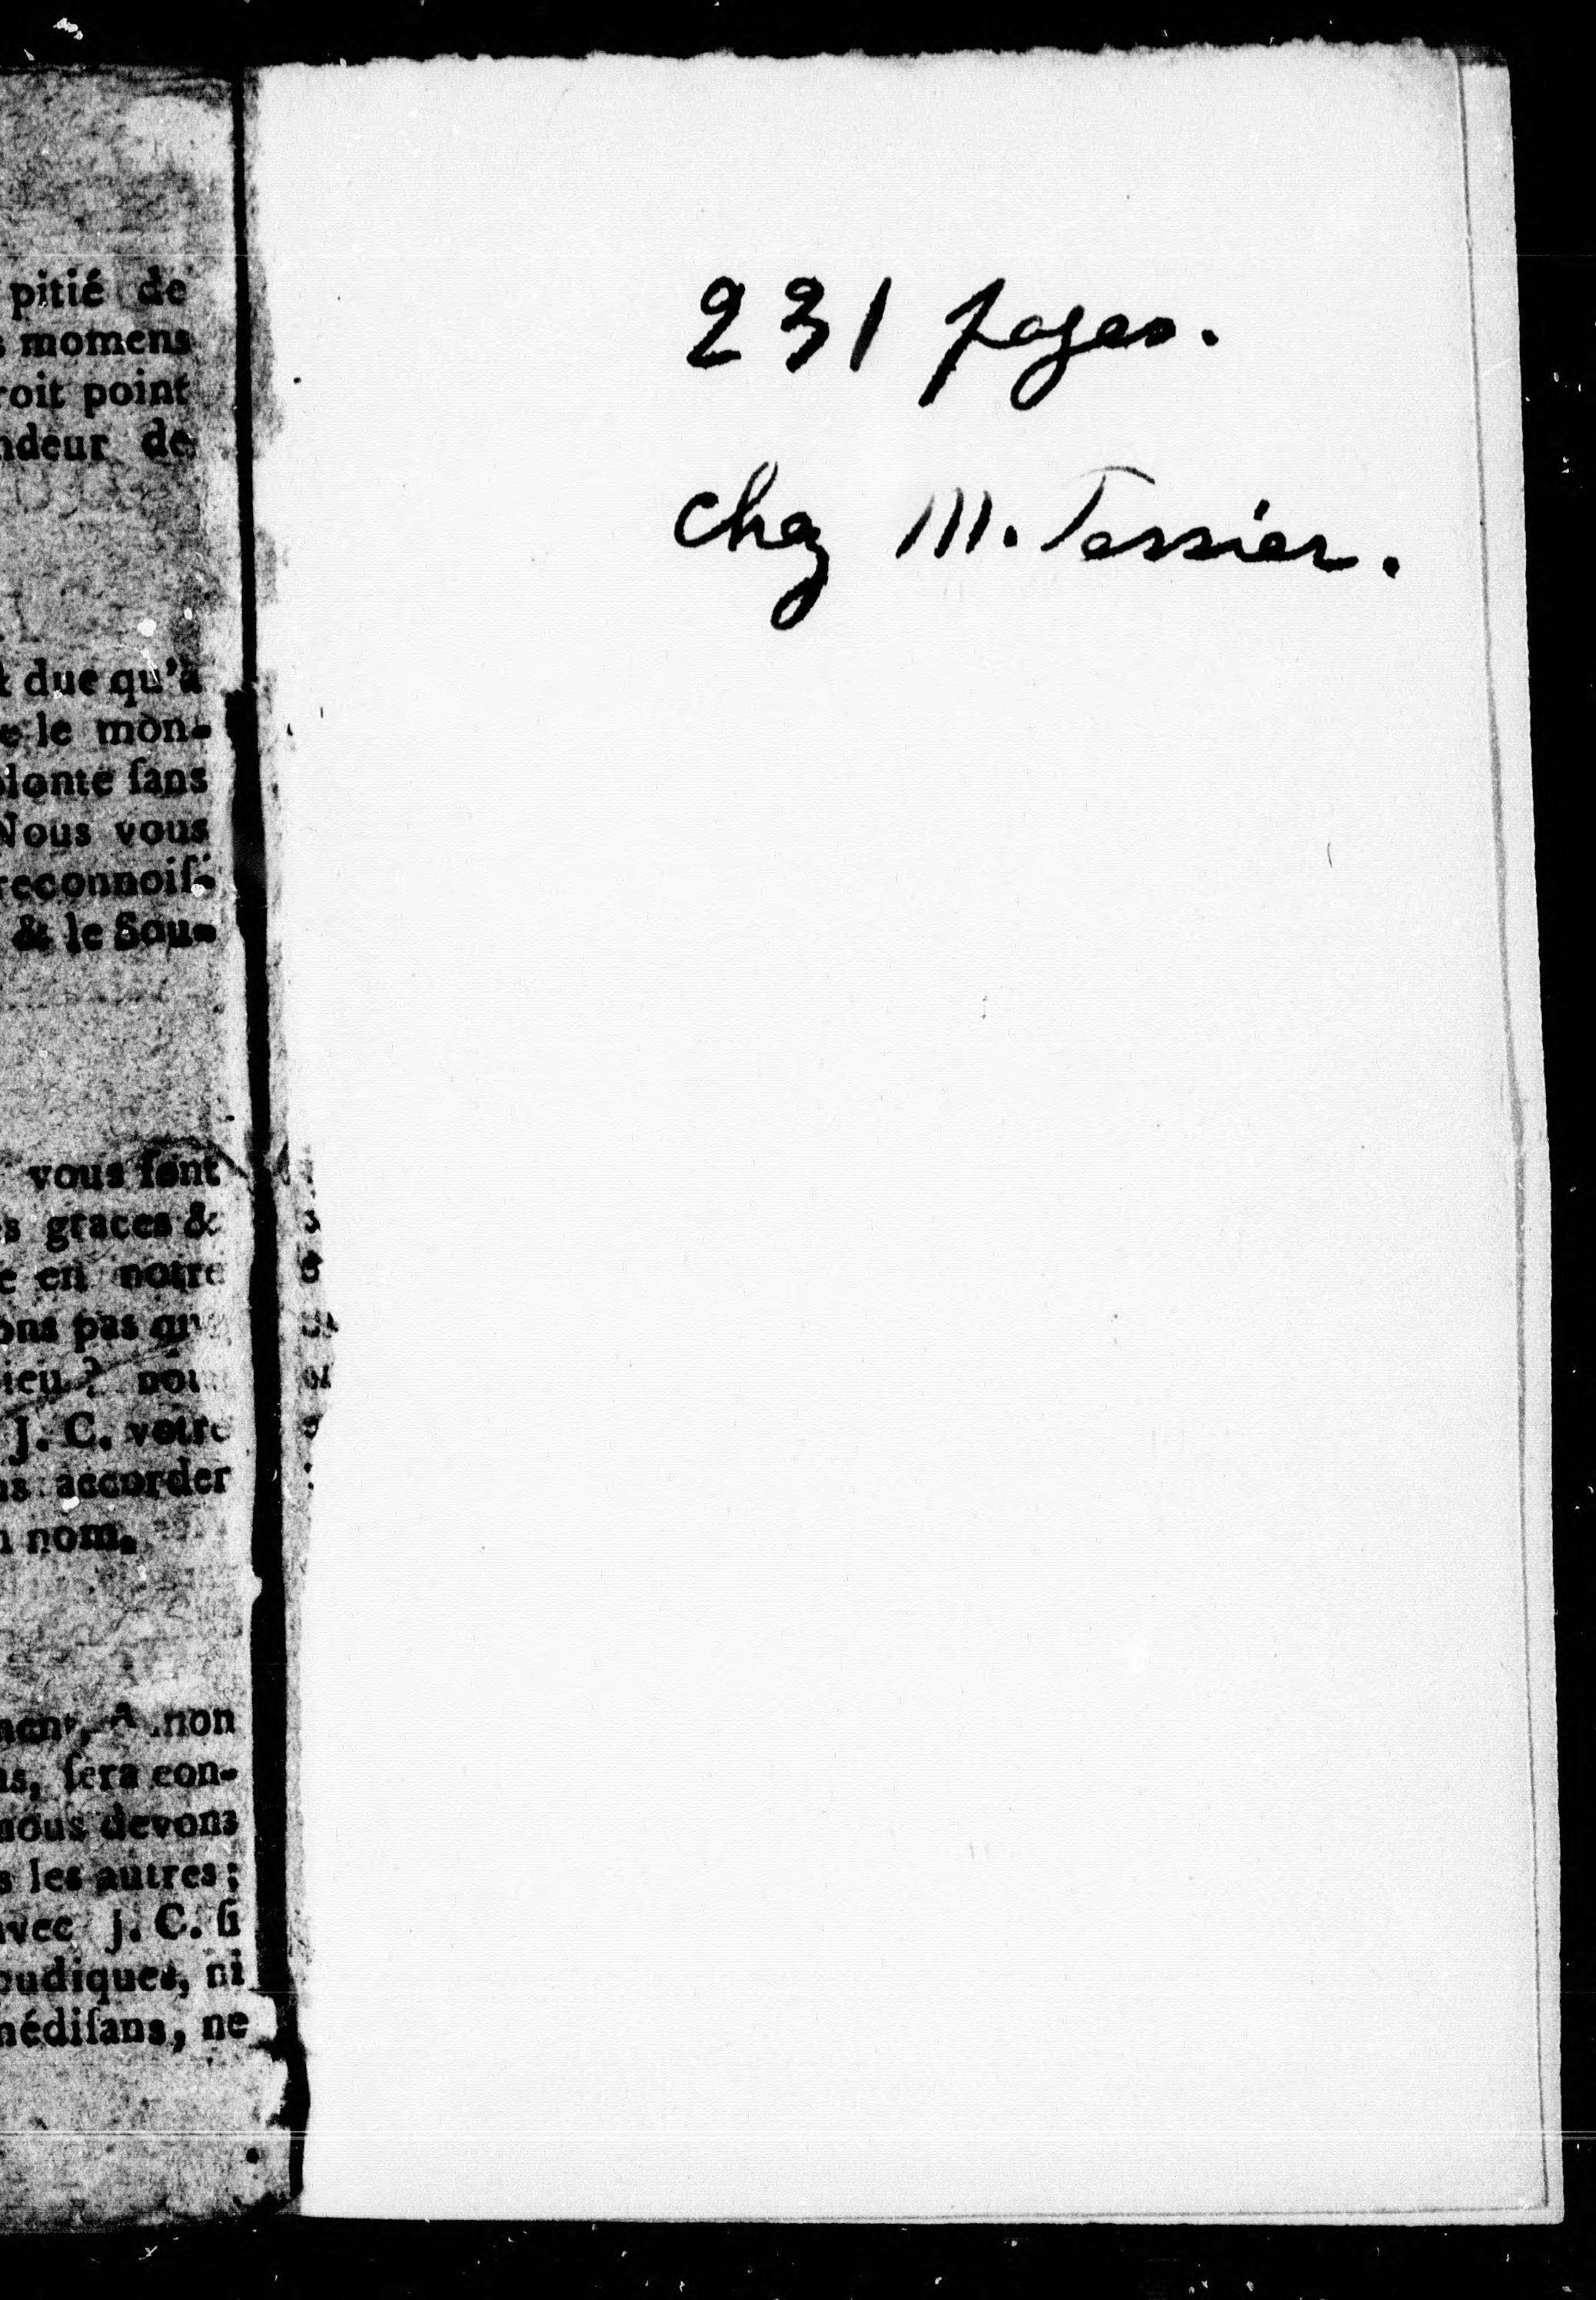 pitié de
momens
roit point
ndeur de
due qu'à
e le mon-
olonte ſans
Nous vous
reconnoiſ-
& le Sou-
vous ſont
s graces &
e en notre
ons pas
ieu? nou
J. C. votre
ns accorder
nom.
non
ns, ſera con-
nous devons
s les autres;
avec J. C. ſi
oudiques, ni
médiſans, ne
231 pages.
chez M. Tessier.